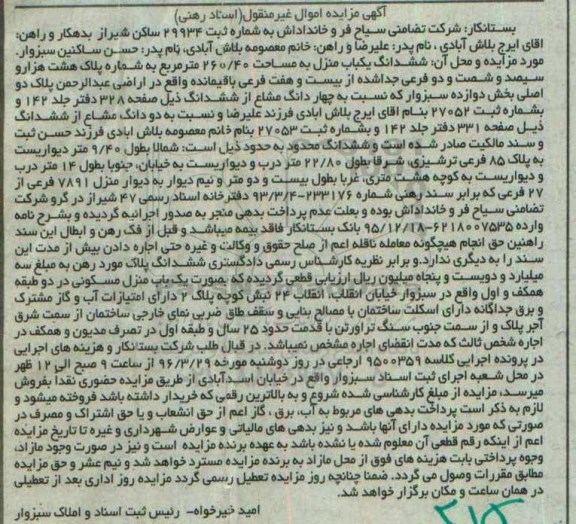 آگهی مزایده اموال غیرمنقول(اسناد رهنی)
بستانکار: شرکت تضامنی سیاح فر و خاندادش به شماره ثبت ۲۹۹۳۴ ساکن شیراز بدهکار و راهن:
اقای ایرج بلاش آبادی ، نام پدر: علیرضا و راهن: خانم معصومه بلاش آبادی، نام پدر: حسن ساکنین سبزوار.
مورد مزایده و محل آن: ششدانگ یکباب منزل به مساحت ۲۶۰/۴۰ مترمربع به شماره پلاک هشت هزار و
سیصد و شصت و دو فرعی جداشده از بیست و هفت فرعی باقیمانده واقع در اراضی عبدالرحمن پلاک دو
اصلی بخش دوازده سبزوار که نسبت به چهار دانگ مشاع از ششدانگ ذیل صفحه ۳۲۸ دفتر جلد ۱۴۲ و
بشماره ثبت ۲۷۰۵۲ بنام اقای ایرج بلاش ابادی فرزند علیرضا و نسبت به دو دانگ مشاع از ششدانگ
ذیل صفحه ۳۳۱ دفتر جلد ۱۴۲ و بشماره ثبت ۲۷۰۵۳ بنام خانم معصومه بلاش ابادی فرزند حسن ثبت
و سند مالکیت صادر شده است و ششدانگ محدود به حدود ذیل است: شمالا بطول ۹/۴۰ متر دیواریست
به پلاک ۸۵ فرعی ترشیزی، شرقا بطول ۲۲/۸۰ متر درب و دیواریست به خیابان، جنوبا بطول ۱۴ متر درب
و دیواریست به کوچه هشت متری، غربا بطول بیست و دو متر و نیم دیوار به دیوار منزل ۷۸۹۱ فرعی از
۲۷ فرعی که برابر سند رهنی شماره ۲۳۳۱۷۶-۹۳/۳/۴ دفترخانه اسناد رسمی ۴۷ شیراز در گرو شرکت
تضامنی سیاح فر و خاندادش بوده و بعلت عدم پرداخت بدهی منجر به صدور اجرائیه گردیده و بشرح نامه
وارده ۶۲۱۸۰۰۷۵۳۵-۹۵/۱۲/۱۸ بانک بستانکار فاقد بیمه میباشد و قبل از فک رهن و ابطال این سند
راهنین حق انجام هیچگونه معامله ناقله اعم از صلح حقوق و وکالت و غیره حتی اجاره دادن بیش از مدت این
سند را به دیگری ندارد. و برابر نظریه کارشناس رسمی دادگستری ششدانگ پلاک مورد رهن به مبلغ سه
میلیارد و دویست و پنجاه میلیون ریال ارزیابی قطعی گردیده که بصورت یک باب منزل مسکونی در دو طبقه
همکف و اول واقع در سبزوار خیابان انقلاب، انقلاب ۲۴ نبش کوچه پلاک ۲ دارای امتیازات آب و گاز مشترک
و برق جداگانه دارای اسکلت ساختمان با مصالح بنایی و سقف طاق ضربی نمای خارجی ساختمان از سمت شرق
آجر پلاک و از سمت جنوب سنگ تراورتن با قدمت حدود ۲۵ سال و طبقه اول در تصرف مدیون و همکف در
اجاره شخص ثالث که مدت انقضای اجاره مشخص نمیباشد. در قبال طلب شرکت بستانکار و هزینه های اجرایی
در پرونده اجرایی کلاسه ۹۵۰۰۳۵۹ ارجاعی در روز دوشنبه مورخه ۹۶/۳/۲۹ از ساعت ۹ صبح الی ۱۲ ظهر
در محل شعبه اجرای ثبت اسناد سبزوار واقع در خیابان اسدآبادی از طریق مزایده حضوری نقدا بفروش
میرسد، مزایده از مبلغ کارشناسی شده شروع و به بالاترین رقمی که خریدار داشته باشد فروخته میشود و
لازم به ذکر است پرداخت بدهی های مربوط به آب، برق ، گاز اعم از حق انشعاب و یا حق اشتراک و مصرف در
صورتی که مورد مزایده دارای آنها باشد و نیز بدهی های مالیاتی و عوارض شهرداری و غیره تا تاریخ مزایده
اعم از اینکه رقم قطعی آن معلوم شده یا نشده باشد به عهده برنده مزایده است و نیز در صورت وجود مازاد،
وجوه پرداختی بابت هزینه های فوق از محل مازاد به برنده مزایده مسترد خواهد شد و نیم عشر و حق مزایده
مطابق مقررات وصول می گردد. ضمنا چنانچه روز مزایده تعطیل رسمی گردد مزایده روز اداری بعد از تعطیلی
در همان ساعت و مکان برگزار خواهد شد.
امید خیرخواه- رئیس ثبت اسناد و املاک سبزوار